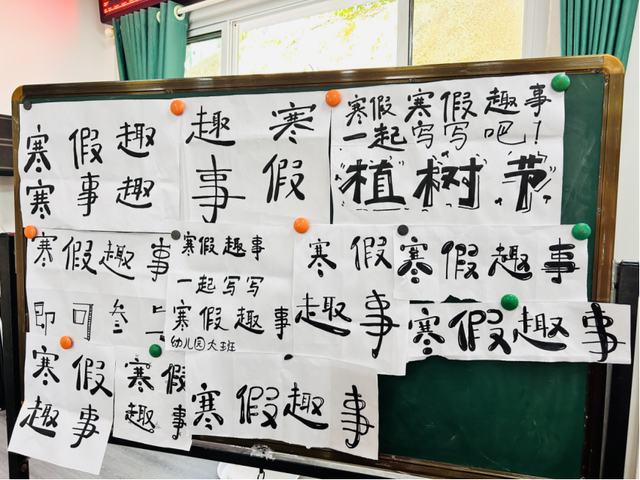 寒假趣
寒事趣
趣寒
事假
寒假 寒假趣事
一起写写吧！
植树节
寒假趣事
即可参与
寒假趣事
一起写写
寒假趣事
幼儿园大班
寒假
趣事
寒假趣事
寒假趣事
寒假
趣事
寒假
趣事
寒假趣事